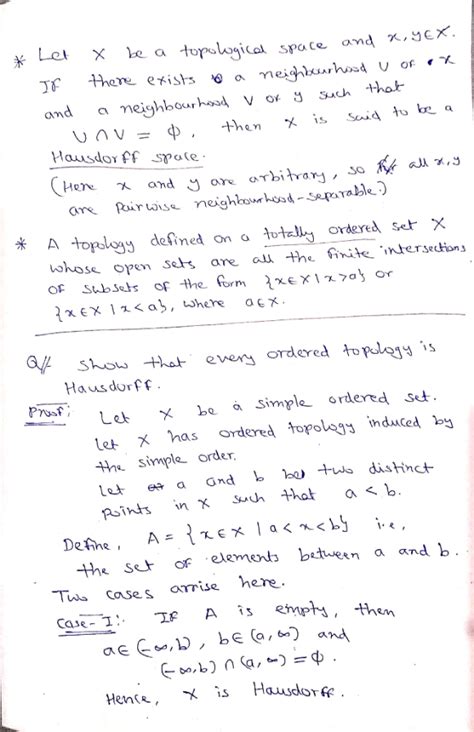 * Let X be a topological space and x, y ∈ X.
If there exists a neighbourhood U of x
and a neighbourhood V of y such that
U ∩ V = ϕ, then X is said to be a
Hausdorff space.
(Here x and y are arbitrary, so all x, y
are pairwise neighbourhood-separable.)
* A topology defined on a totally ordered set X
whose open sets are all the finite intersections
of subsets of the form {x ∈ X | x > a} or
{x ∈ X | x < a}, where a ∈ X.
Q// Show that every ordered topology is
Hausdurff.
Proof: Let X be a simple ordered set.
Let X has ordered topology induced by
the simple order.
Let a and b be two distinct
points in X such that a < b.
Define, A = {x ∈ X | a < x < b} i.e,
the set of elements between a and b.
Two cases arrise here.
Case-I: If A is empty, then
a ∈ (-∞, b), b ∈ (a, ∞) and
(-∞, b) ∩ (a, ∞) = ϕ.
Hence, X is Hausdorff.